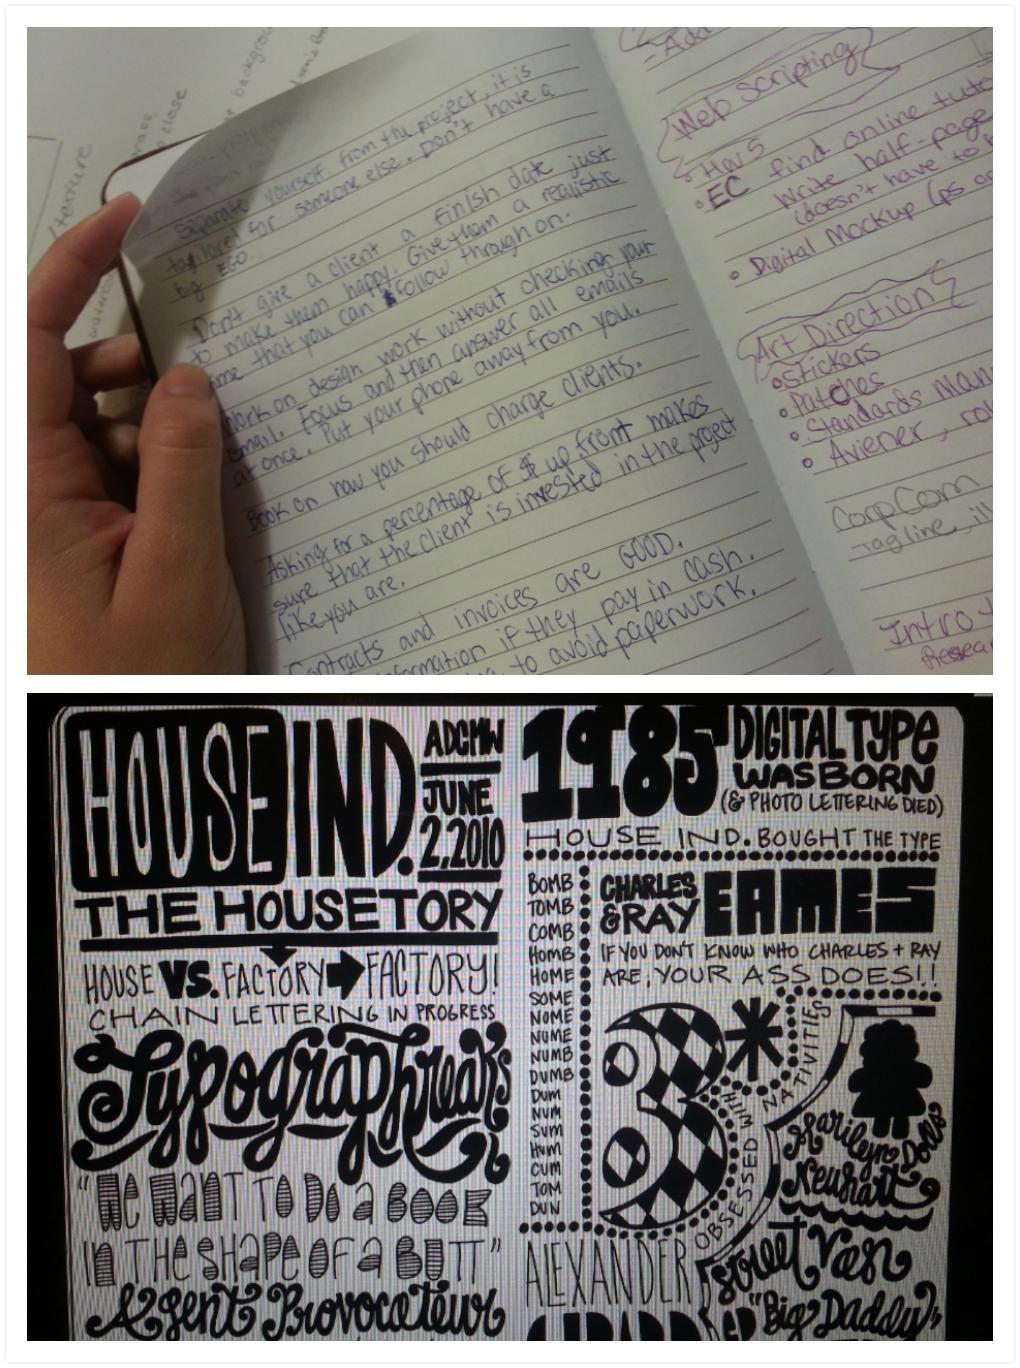 texture
close
backgrou
Separate yourself from the project, it is
tailored for someone else. Don't have a
big EGO.
Don't give a client a finish date just
to make them happy. Give them a realistic
time that you can follow through on.
Work on design work without checking your
email. Focus and then answer all emails
at once. Put your phone away from you.
Book on how you should charge clients.
Asking for a percentage of $ up front makes
sure that the client is invested in the project
like you are.
Contracts and invoices are GOOD.
information if they pay in cash.
to avoid paperwork.
Add
Web Scripting
EC find online tuto
Write half-page
(doesn't have to b
Digital Mockup (ps or
Art Direction
Stickers
Patches
Standards Man
Aviener, rol
CorpCom
Tagline, ill
Intro t
Resear
HOUSE IND.
ADCMW
JUNE
2,2010
THE HOUSETORY
HOUSE VS. FACTORY FACTORY!
CHAIN LETTERING IN PROGRESS
Typographreaks
"WE WANT TO DO a BOOK
IN THE SHAPE OF a BUTT"
Agent Provocateur
1985 DIGITAL TYPE
WAS BORN
(& PHOTO LETTERING DIED)
HOUSE IND. BOUGHT THE TYPE
BOMB
TOMB
COMB
HOMB
HOME
SOME
NOME
NUME
NUMB
DUMB
DUM
NUM
SUM
HUM
CUM
TOM
DUN
CHARLES
& RAY EAMES
IF YOU DON'T KNOW WHO CHARLES + RAY
ARE, YOUR ASS DOES!!
3*
OBSESSED WITH NATIVITIES
Marilyn Dolls
Neuhart
ALEXANDER
Street Van
"Big Daddy"